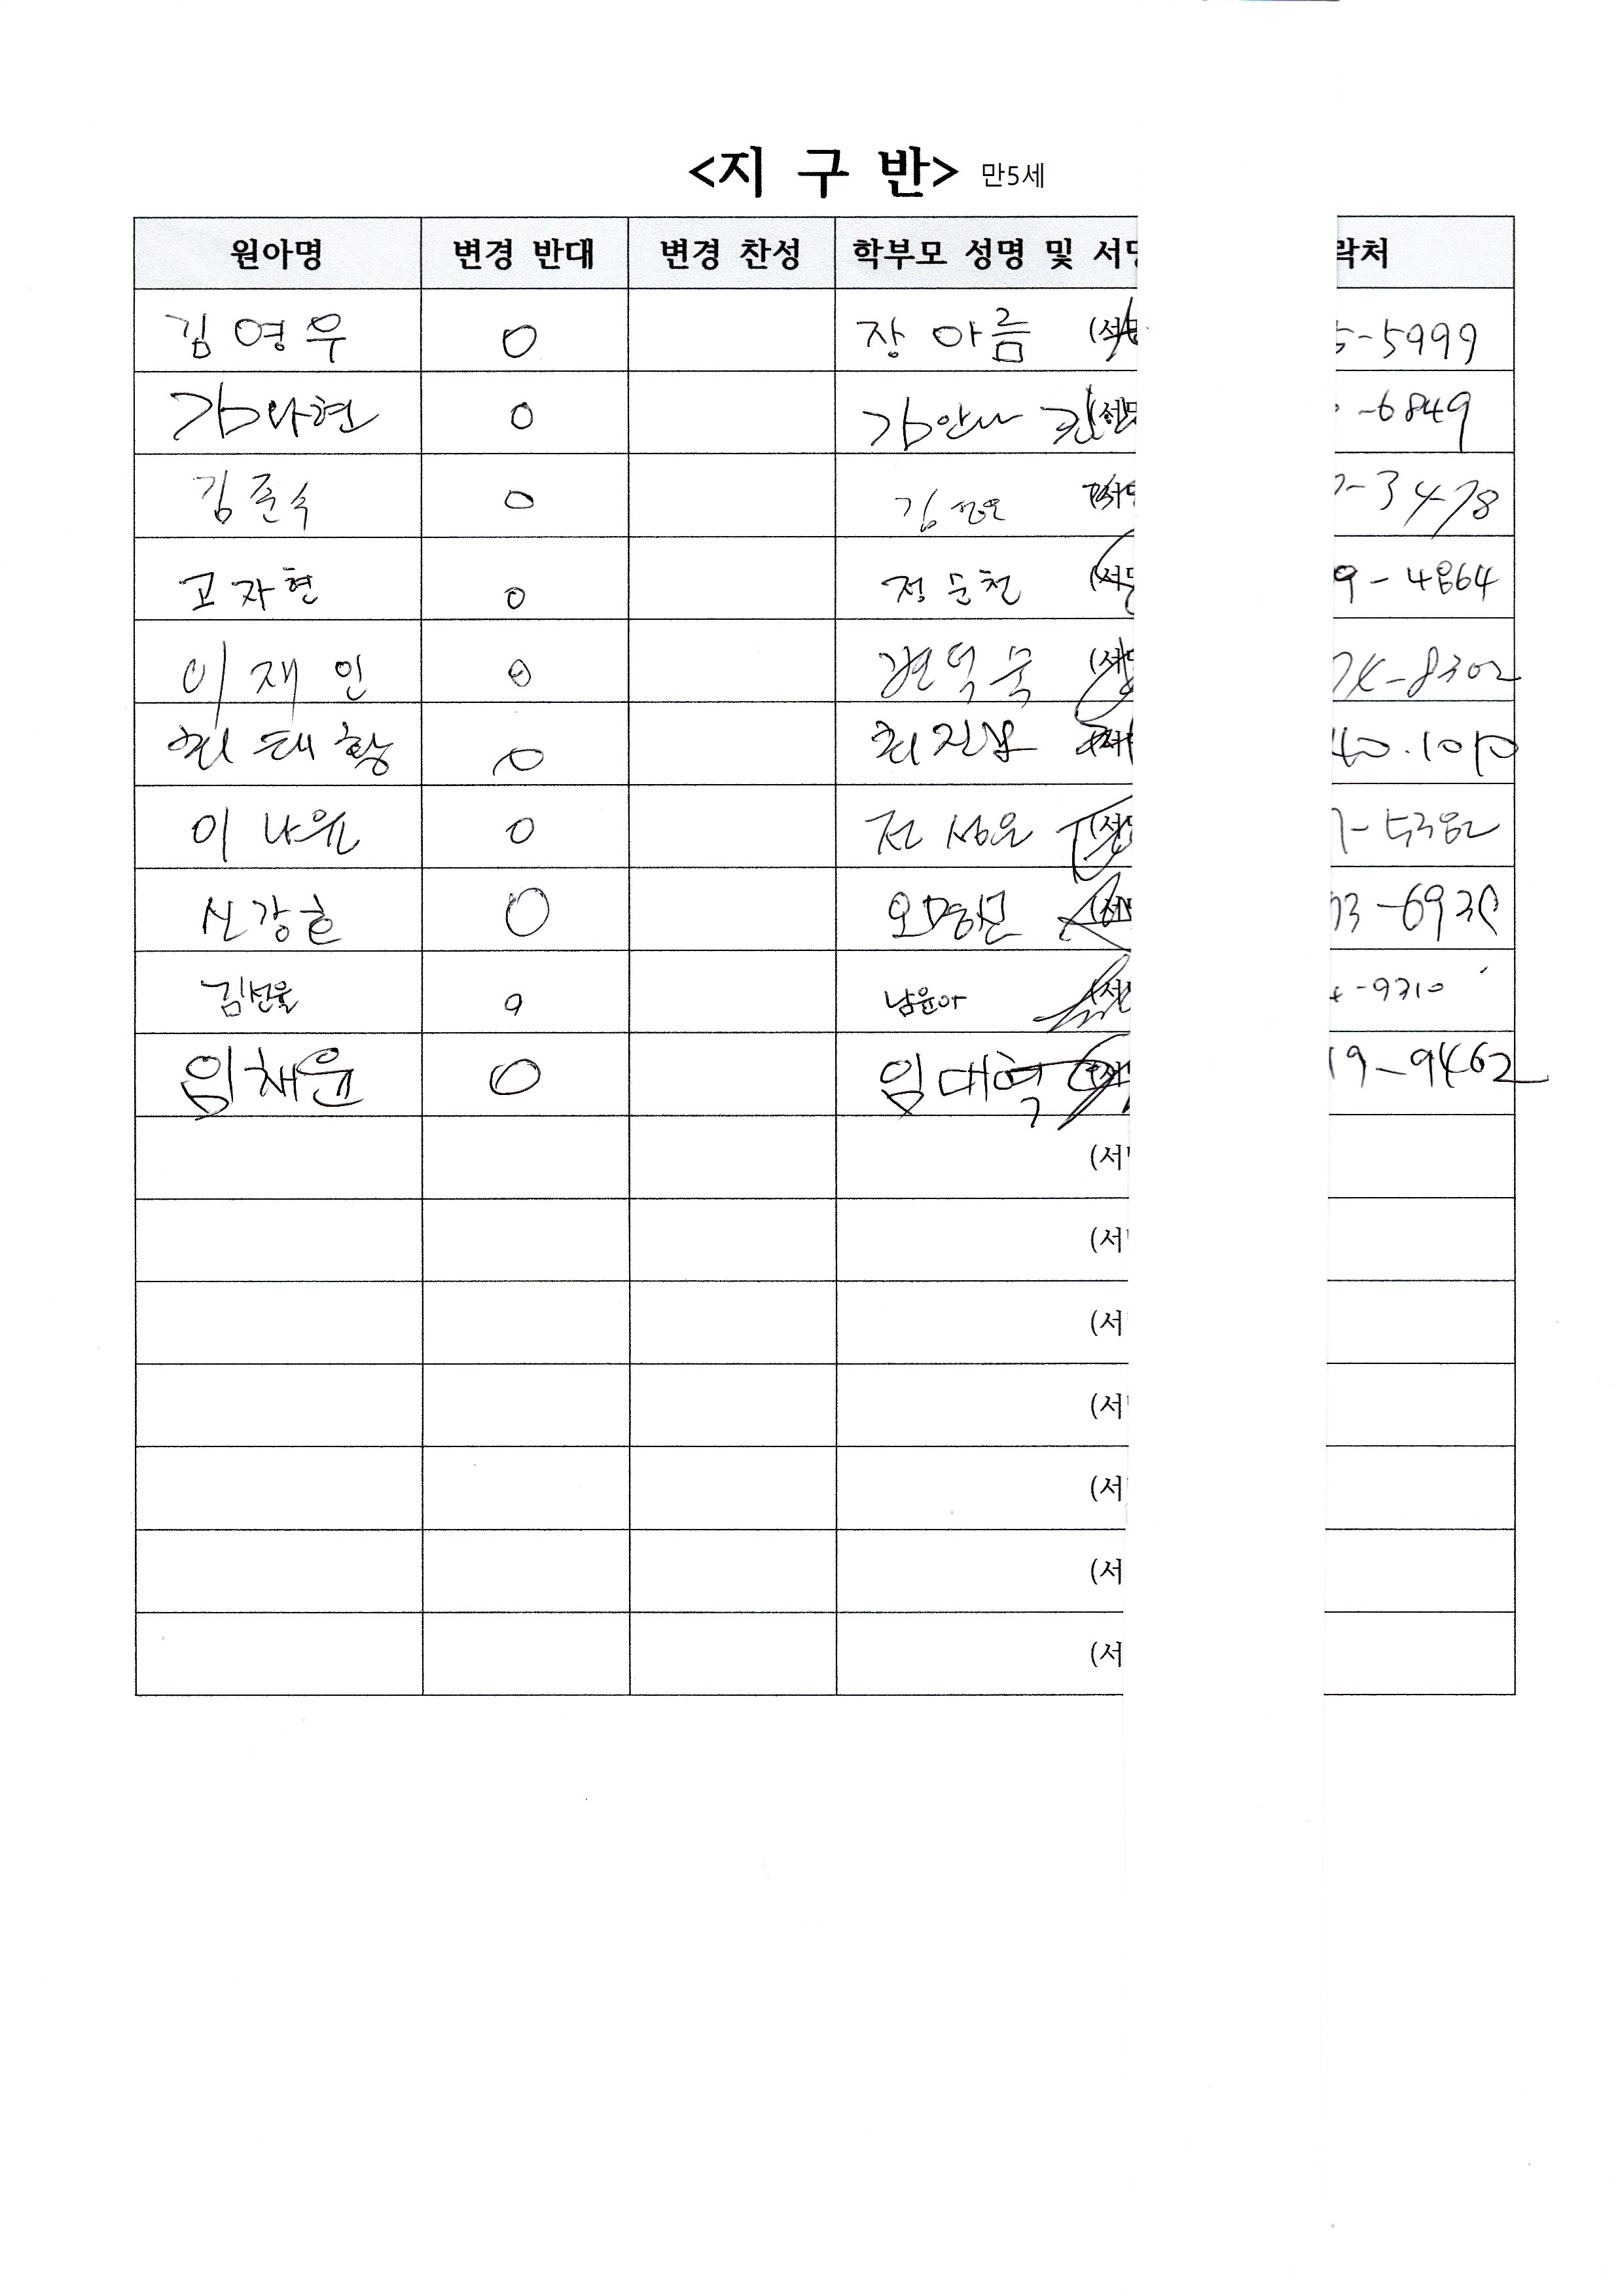 <지 구 반> 만5세
원아명 변경 반대 변경 찬성 학부모 성명 및 서명 락처
김영우 O 장아름 (서명 5-5999
김나현 O 김안나 (서명 -6849
김준수 O (서명 7-3478
고자현 O 정순천 (서명 9-4864
이재인 O (서명 74-8302
최태황 O 최진남 (서 40.1010
이나윤 O 전성은 (서명 7-5382
신강훈 O (서명 03-693
김선율 O 남윤아 (서명 4-9310
임채윤 O 임대혁 (서 19-9462
(서
(서
(서
(서
(서
(서
(서